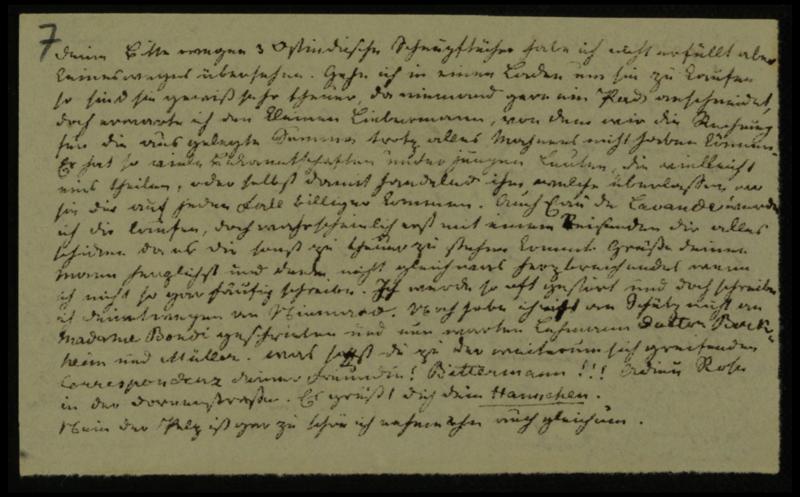 7
Deine Bitte wegen 3 Ostindische Schnupftücher habe ich nicht erfüllt aber
keineswegs übersehen. Gehe ich in einen Laden um sie zu kaufen
so sind sie gewiß sehr theuer, da niemand gern ein Pack anschneidet,
doch erwarte ich den kleinen Liebermann, von dem wir die Rechnung
für die ausgelegte Summe trotz alles Mahnens nicht haben können.
Er hat so viele Bekanntschaften unter jungen Leuten, die vielleicht
eins theilen, oder selbst damit handeln ihm welche überlassen wo
sie dir auf jeden Fall billiger kommen. Auch Eau de Lavande werde
ich dir kaufen, doch wahrscheinlich erst mit einem Reisenden dir alles
schicken da es dir sonst zu theuer zu stehen kommt. Grüße deinen
Mann herzlichst und nicht gleich was herzbrechendes wenn
ich nicht so gar häufig schreibe. Ich werde so oft gestört und doch schreibe
ich deinetwegen an Niemand. Noch habe ich nicht an Schütz nicht an
Madame Bondi geschrieben und nun warten Lehmann Dokter Bock-
heim und Müller. Was sagst du zu der weiterum sich greifenden
Correspondenz deiner Freundin! Bittermann!!! Adieu Rose
in der Dornenstraße. Es grüßt dich dein Hannchen.
Nein der Pelz ist gar zu schön ich nehme ihn auch gleich um.